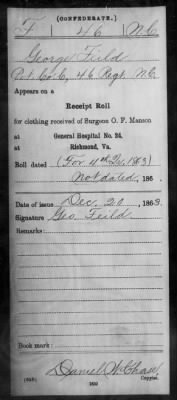 (CONFEDERATE.)
F 46 N.C.
George Feild
Pvt Co C, 46 Regt. N.C.
Appears on a
Receipt Roll
for clothing received of Surgeon O. F. Manson
at General Hospital No. 24,
at Richmond, Va.
Roll dated (For 4th Qr. 1863)
Not dated, 186 .
Date of issue Dec. 20, 1863.
Signature Geo. Feild
Remarks:
Book mark:
Daniel W. Chase
Copyist.